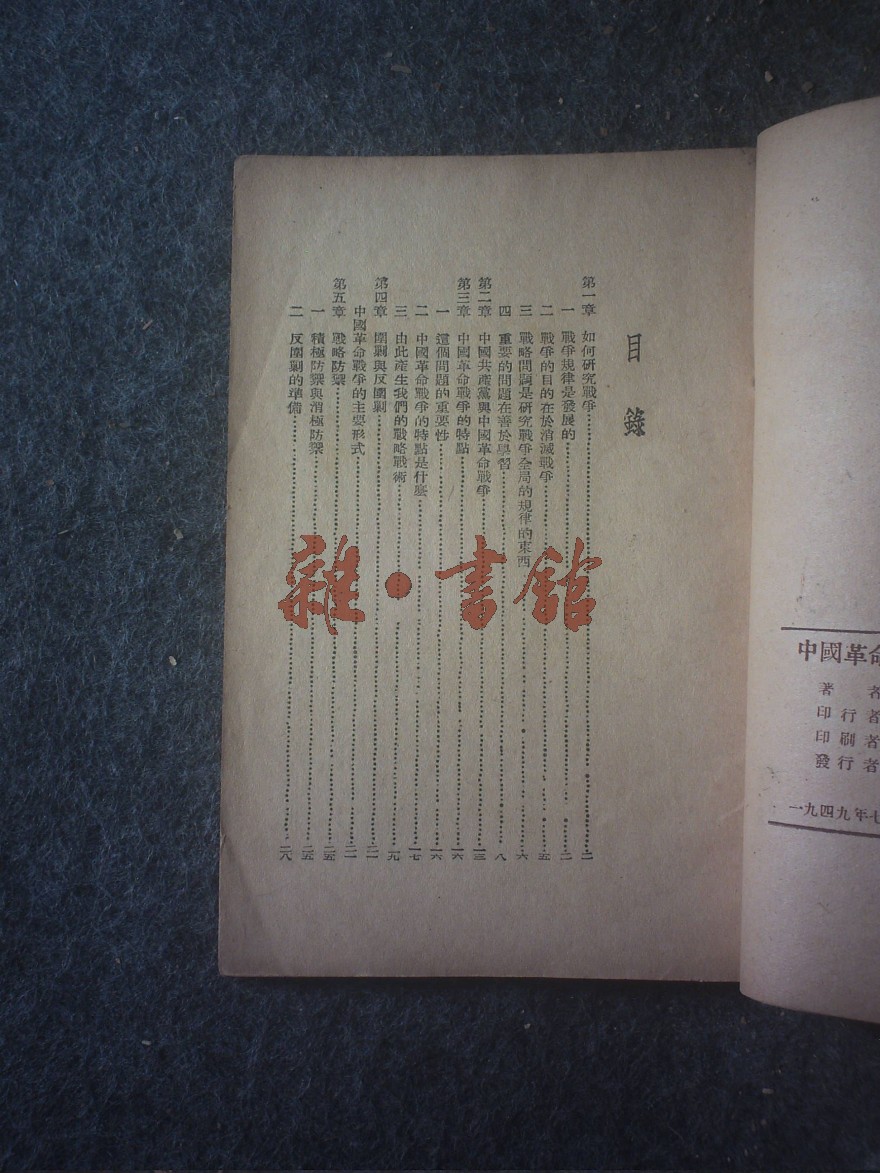 中國革命
著者
印行者
印刷者
發行者
一九四九年七
目錄
第一章 如何研究戰爭……二
一 戰爭規律是發展的……二
二 戰爭的目的在於消滅戰爭……五
三 戰略問題是研究戰爭全局的規律的東西……六
四 重要的問題在善於學習……八
第二章 中國共產黨與中國革命戰爭……一三
第三章 中國革命戰爭的特點……一六
一 這個問題的重要性……一六
二 中國革命戰爭的特點是什麼……一七
三 由此產生我們的戰略戰術……一九
第四章 圍剿與反圍剿
中國革命戰爭的主要形式……二一
第五章 戰略防禦……二五
一 積極防禦與消極防禦……二五
二 反圍剿的準備……二八
雜·書館